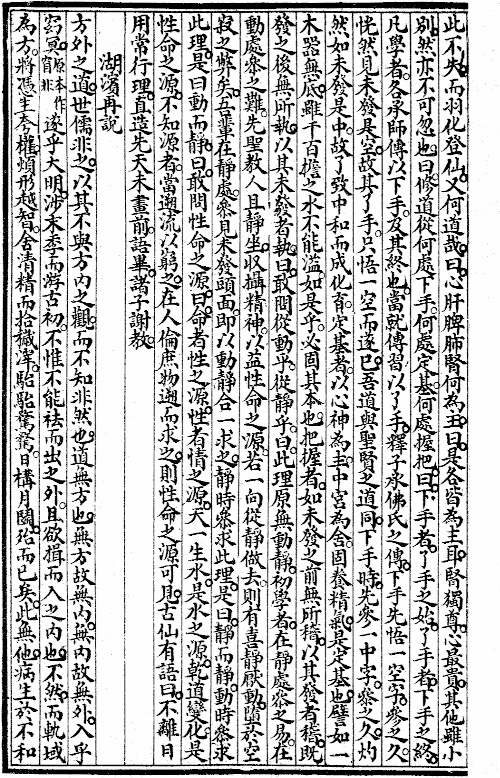 此不失而羽化登仙又何道哉曰心肝脾肺腎何為主曰是各皆為主耳腎獨尊心最貴其他雖小
別然亦不可忽也曰修道從何處下手何處定基何處握把曰下手者了手之始了手者下手之終
凡學者各承師傳以下手及其終也當就傳習以了手釋子承佛氏之傳下手先悟一空字參之久
恍然見未發是空故其了手只悟一空而遂已吾道與聖賢之道同下手時先參一中字參之久灼
然如未發是中故了致中和而成化育定基者以心神為主中宮為舍固養精氣是定基也譬如一
木器無底雖千百擔之水不能溢如是乎必固其本也把握者如未發之前無所稽以其發者稽既
發之後無所執以其未發者執曰敢問從動乎從靜乎曰此理原無動靜初學者在靜處參之易在
動處參之難先聖教人且靜坐收攝精神以益性命之源若一向從靜做去則有喜靜厭動墮於空
寂之弊矣吾輩在靜處參見未發頭面即以動靜合一求之靜時參求此理是曰靜而靜動時參求
此理是曰動而靜曰敢問性命之源曰命者性之源性者情之源天一生水是水之源乾道變化是
性命之源不知源者當遡流以窮之在人倫庶物遡而求之則性命之源可見古仙有語曰不離日
用常行理直造先天未畫前語畢諸子謝教
湖濱再說
方外之道世儒非之以其不與方內之觀而不知非然也道無方也無方故無內無內故無外入乎
窈冥原本作宵非遂乎大明沙末季而游古初不惟不能祛而出之外且欲揖而入之內也不然而軌域
為方將憑生夸權煩形越智舍清精而拾穢滓駘駘驁驁日構月鬬殆而已矣此無他病生於不和